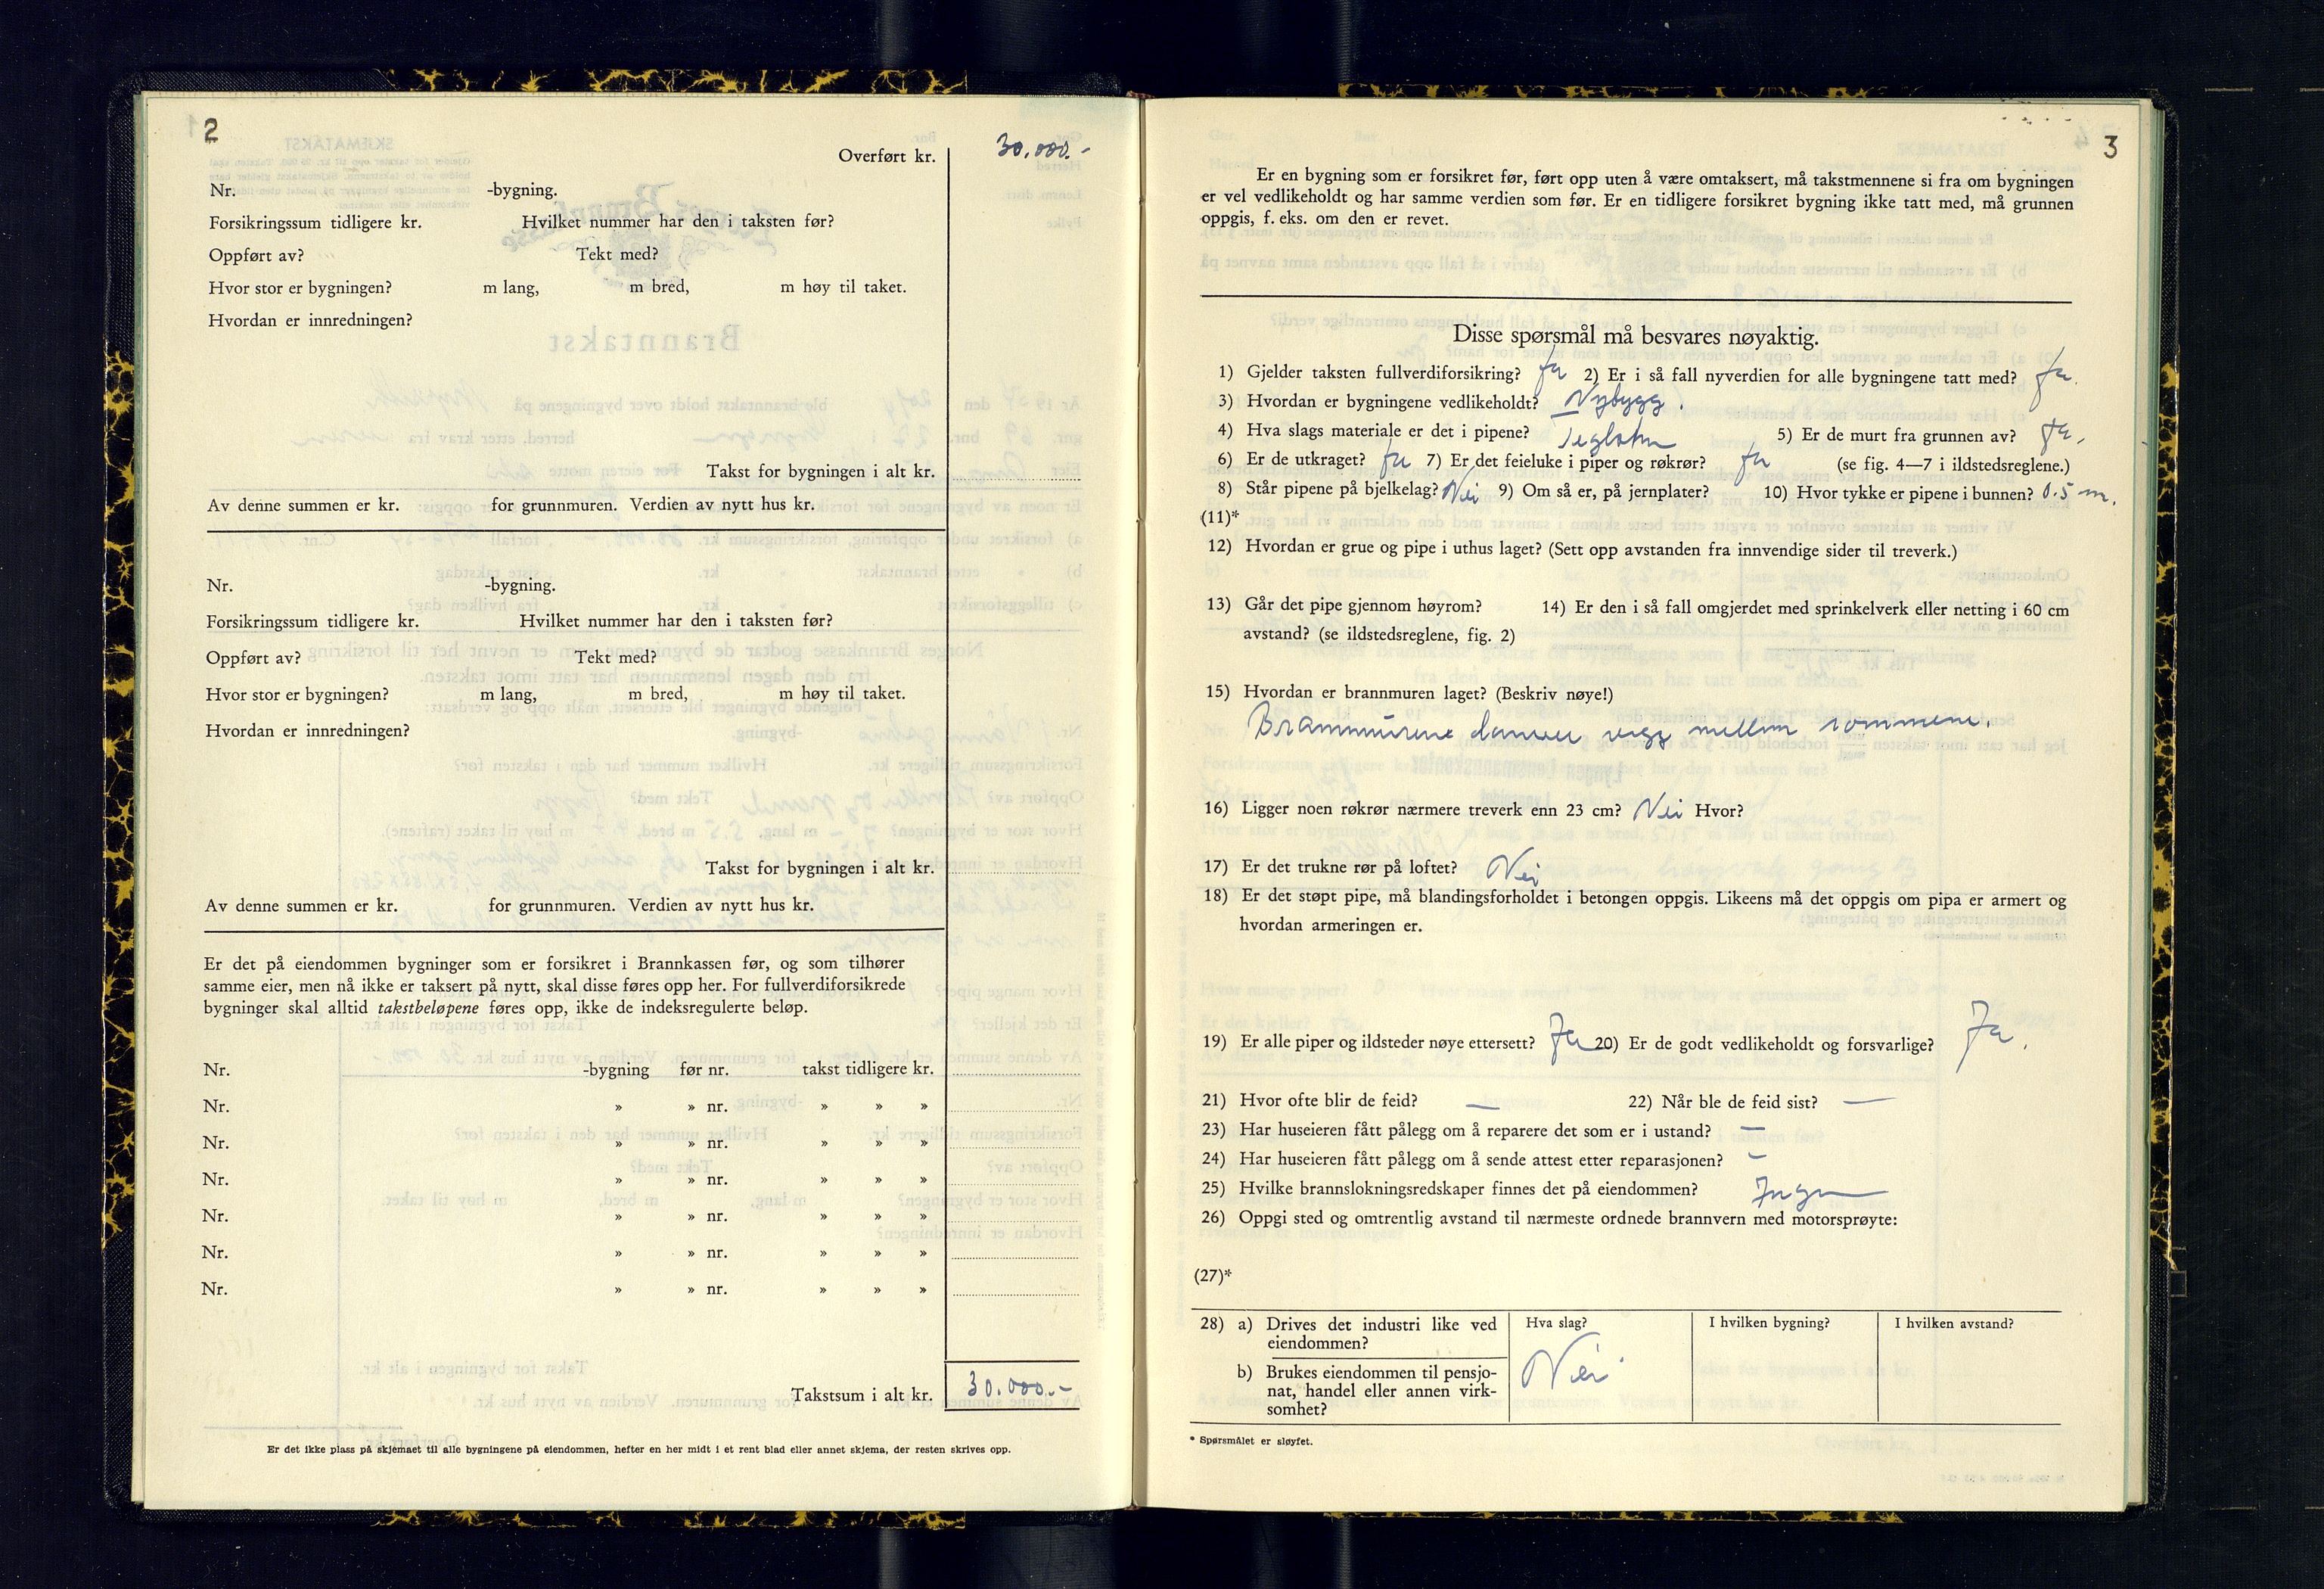 2
Overført kr. 30.000.-
Nr. -bygning.
Forsikringssum tidligere kr. Hvilket nummer har den i taksten før?
Oppført av? Tekt med?
Hvor stor er bygningen? m lang, m bred, m høy til taket.
Hvordan er innredningen?
Takst for bygningen i alt kr.
Av denne summen er kr. for grunnmuren. Verdien av nytt hus kr.
Nr. -bygning.
Forsikringssum tidligere kr. Hvilket nummer har den i taksten før?
Oppført av? Tekt med?
Hvor stor er bygningen? m lang, m bred, m høy til taket.
Hvordan er innredningen?
Takst for bygningen i alt kr.
Av denne summen er kr. for grunnmuren. Verdien av nytt hus kr.
Er det på eiendommen bygninger som er forsikret i Brannkassen før, og som tilhører
samme eier, men nå ikke er taksert på nytt, skal disse føres opp her. For fullverdiforsikrede
bygninger skal alltid takstbeløpene føres opp, ikke de indeksregulerte beløp.
Nr. -bygning før nr. takst tidligere kr.
Nr. » » nr. » » »
Nr. » » nr. » » »
Nr. » » nr. » » »
Nr. » » nr. » » »
Nr. » » nr. » » »
Nr. » » nr. » » »
Takstsum i alt kr. 30.000.-
Er det ikke plass på skjemaet til alle bygningene på eiendommen, hefter en her midt i et rent blad eller annet skjema, der resten skrives opp.
3
Er en bygning som er forsikret før, ført opp uten å være omtaksert, må takstmennene si fra om bygningen
er vel vedlikeholdt og har samme verdien som før. Er en tidligere forsikret bygning ikke tatt med, må grunnen
oppgis, f. eks. om den er revet.
Disse spørsmål må besvares nøyaktig.
1) Gjelder taksten fullverdiforsikring? Ja 2) Er i så fall nyverdien for alle bygningene tatt med? Ja.
3) Hvordan er bygningene vedlikeholdt? Nybygg.
4) Hva slags materiale er det i pipene? 5) Er de murt fra grunnen av? Ja.
6) Er de utkraget? Ja 7) Er det feieluke i piper og røkrør? Ja (se fig. 4—7 i ildstedsreglene.)
8) Står pipene på bjelkelag? Nei 9) Om så er, på jernplater? 10) Hvor tykke er pipene i bunnen? 0.5 m.
(11)*
12) Hvordan er grue og pipe i uthus laget? (Sett opp avstanden fra innvendige sider til treverk.)
13) Går det pipe gjennom høyrom? 14) Er den i så fall omgjerdet med sprinkelverk eller netting i 60 cm
avstand? (se ildstedsreglene, fig. 2)
15) Hvordan er brannmuren laget? (Beskriv nøye!)
Brannmurene danner vegg mellom rommene.
16) Ligger noen røkrør nærmere treverk enn 23 cm? Nei Hvor?
17) Er det trukne rør på loftet? Nei
18) Er det støpt pipe, må blandingsforholdet i betongen oppgis. Likeens må det oppgis om pipa er armert og
hvordan armeringen er.
19) Er alle piper og ildsteder nøye ettersett? Ja 20) Er de godt vedlikeholdt og forsvarlige? Ja.
21) Hvor ofte blir de feid? — 22) Når ble de feid sist? —
23) Har huseieren fått pålegg om å reparere det som er i ustand? —
24) Har huseieren fått pålegg om å sende attest etter reparasjonen? -
25) Hvilke brannslokningsredskaper finnes det på eiendommen? Ingen
26) Oppgi sted og omtrentlig avstand til nærmeste ordnede brannvern med motorsprøyte:
(27)*
28) a) Drives det industri like ved Hva slag? I hvilken bygning? I hvilken avstand?
eiendommen?
b) Brukes eiendommen til pensjo- Nei
nat, handel eller annen virk-
somhet?
* Spørsmålet er sløyfet.